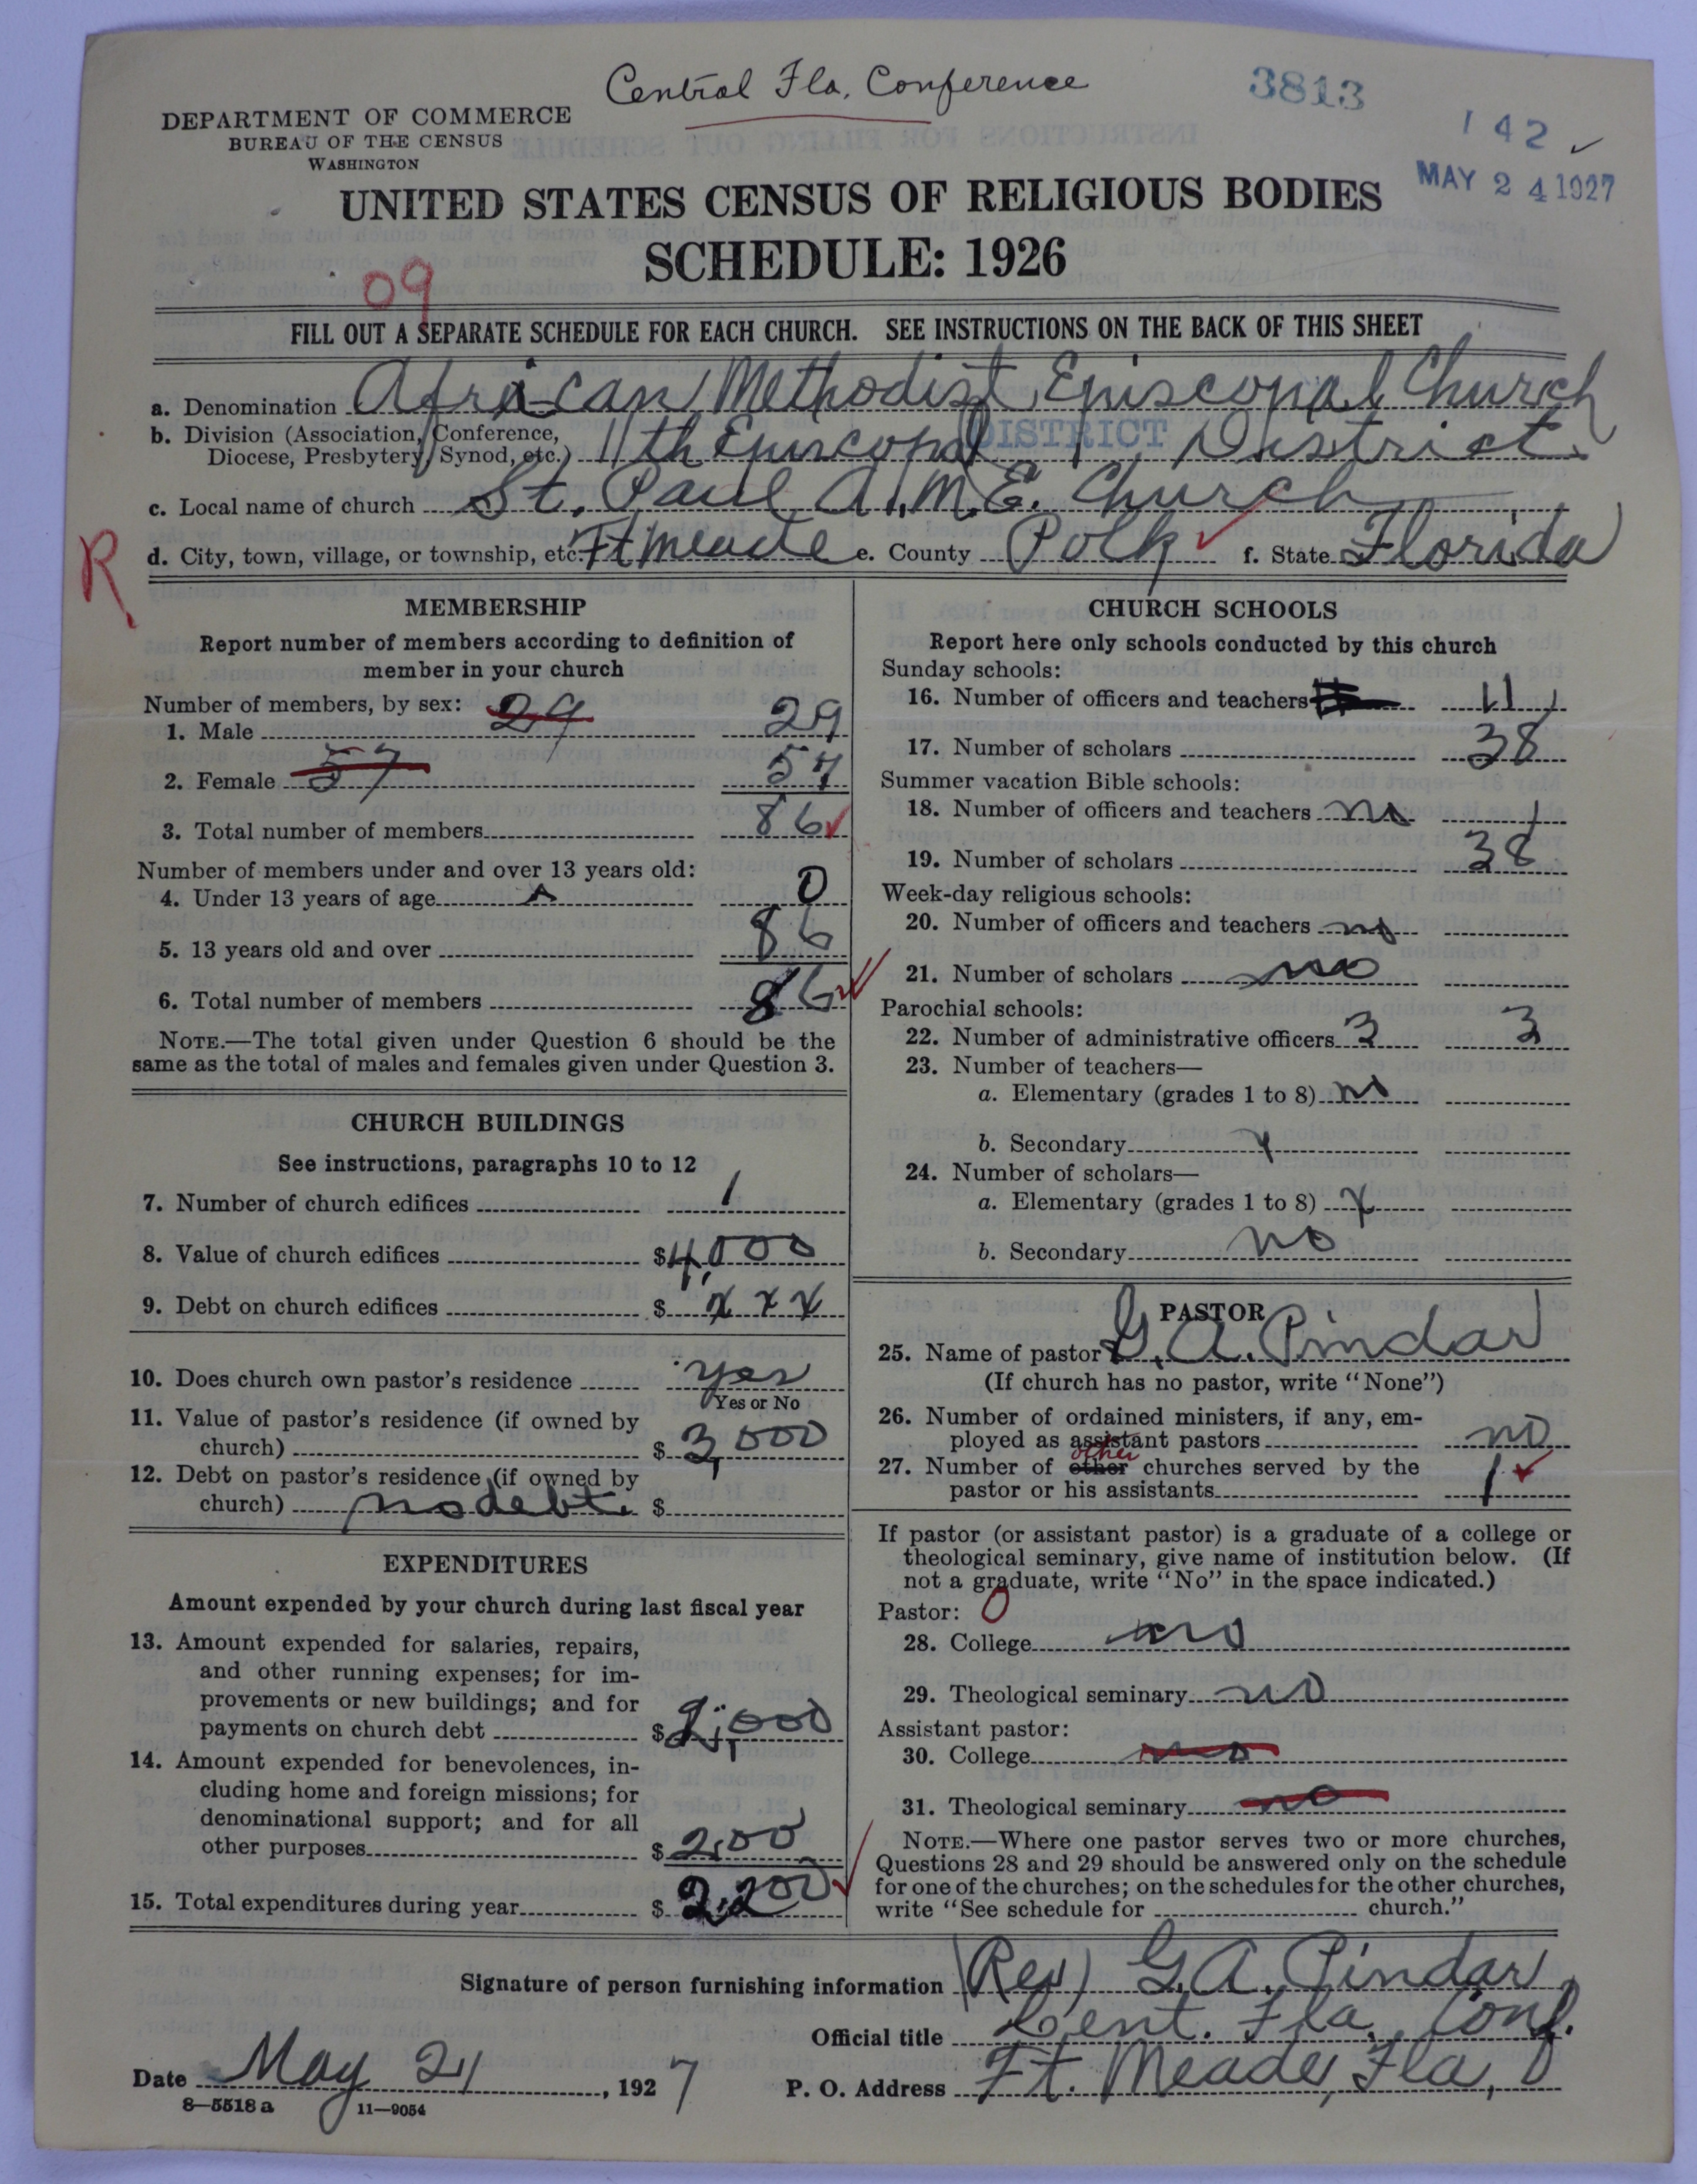 Central Fla. Conference
3813
DEPARTMENT OF COMMERCE
BUREAU OF THE CENSUS
WASHINGTON
142
MAY 24 1927
UNITED STATES CENSUS OF RELIGIOUS BODIES
SCHEDULE: 1926
09
FILL OUT A SEPARATE SCHEDULE FOR EACH CHURCH. SEE INSTRUCTIONS ON THE BACK OF THIS SHEET
a. Denomination African Methodist Episcopal Church
b. Division (Association, Conference,
Diocese, Presbytery, Synod, etc.) 11th Episcopal DISTRICT District
c. Local name of church St. Paul A.M.E. Church
R
d. City, town, village, or township, etc. Ft Meade e. County Polk f. State Florida
MEMBERSHIP
Report number of members according to definition of
member in your church
Number of members, by sex: 29
1. Male 29
2. Female 57 57
3. Total number of members 86
Number of members under and over 13 years old:
4. Under 13 years of age 0
5. 13 years old and over 86
6. Total number of members 86
NOTE.—The total given under Question 6 should be the
same as the total of males and females given under Question 3.
CHURCH BUILDINGS
See instructions, paragraphs 10 to 12
7. Number of church edifices 1
8. Value of church edifices $ 4,000
9. Debt on church edifices $ x x x
10. Does church own pastor's residence yes
Yes or No
11. Value of pastor's residence (if owned by
church) $ 3,000
12. Debt on pastor's residence (if owned by
church) no debt. $
EXPENDITURES
Amount expended by your church during last fiscal year
13. Amount expended for salaries, repairs,
and other running expenses; for im-
provements or new buildings; and for
payments on church debt $ 2,000
14. Amount expended for benevolences, in-
cluding home and foreign missions; for
denominational support; and for all
other purposes $ 200
15. Total expenditures during year $ 2,200
CHURCH SCHOOLS
Report here only schools conducted by this church
Sunday schools:
16. Number of officers and teachers 11
17. Number of scholars 38
Summer vacation Bible schools:
18. Number of officers and teachers no 1
19. Number of scholars 38
Week-day religious schools:
20. Number of officers and teachers no
21. Number of scholars no
Parochial schools:
22. Number of administrative officers 3 3
23. Number of teachers—
a. Elementary (grades 1 to 8) no
b. Secondary x
24. Number of scholars—
a. Elementary (grades 1 to 8) x
b. Secondary no
PASTOR
25. Name of pastor G. A. Pindar
(If church has no pastor, write "None")
26. Number of ordained ministers, if any, em-
ployed as assistant pastors no
other
27. Number of other churches served by the
pastor or his assistants 1
If pastor (or assistant pastor) is a graduate of a college or
theological seminary, give name of institution below. (If
not a graduate, write "No" in the space indicated.)
Pastor: 0
28. College no
29. Theological seminary no
Assistant pastor:
30. College no
31. Theological seminary no
NOTE.—Where one pastor serves two or more churches,
Questions 28 and 29 should be answered only on the schedule
for one of the churches; on the schedules for the other churches,
write "See schedule for church."
Signature of person furnishing information (Rev) G. A. Pindar
Official title Cent. Fla. Conf.
Date May 21, 1927 P. O. Address Ft. Meade, Fla,
8—5518 a 11—9054